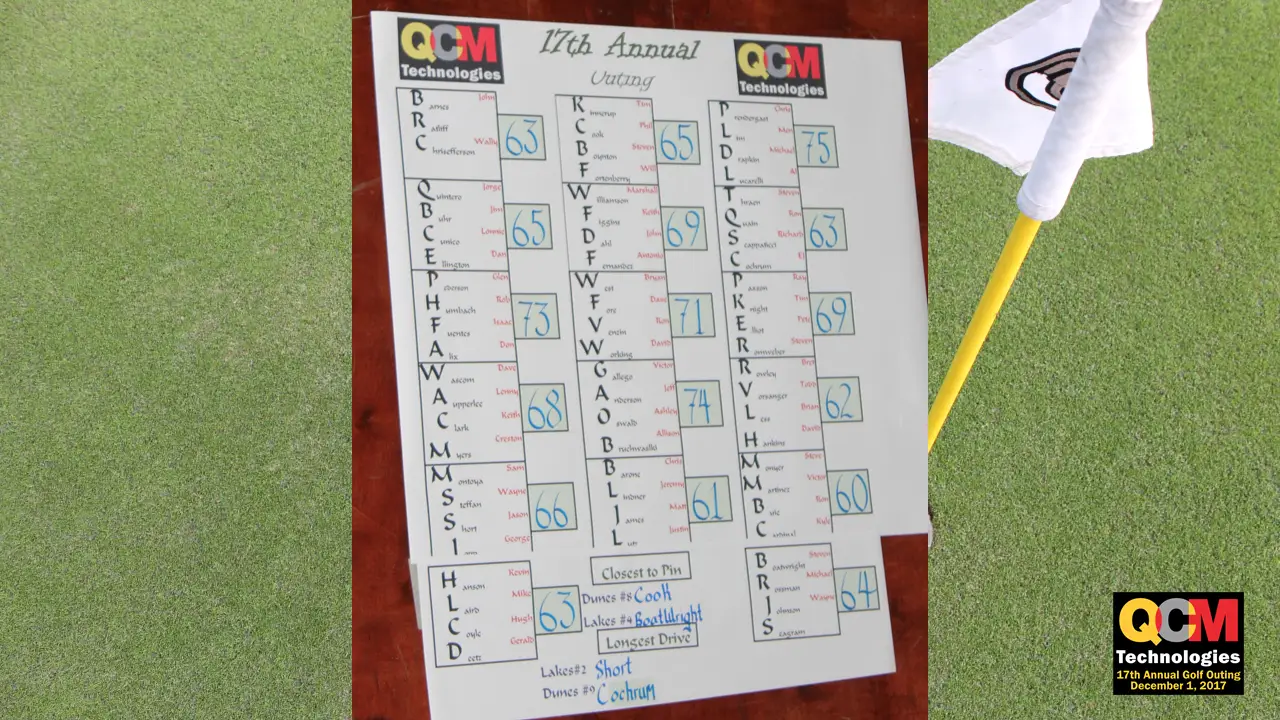 QCM
Technologies
17th Annual
Outing
QCM
Technologies
Barnes John
Ratliff
Chrisefferson Wally
63
Quintero Jorge
Buhr Jim
Cunico Lonnie
Ellington Dan
65
Peterson Glen
Humbach Rob
Fuentes Isaac
Alix Don
73
Wascom Dave
Aupperlee Lenny
Clark Keith
Myers Creston
68
Montoya Sam
Steffan Wayne
Short Jason
George
66
Hanson Kevin
Laird Mike
Coyle Hugh
Deetz Gerald
63
Kinnerup Tim
Cook Phil
Boynton Steven
Fortenberry Will
65
Williamson Marshall
Figgins Keith
Dahl John
Fernandez Antonio
69
West Bryan
Fore Dave
Venzin Ron
Working David
71
Gallego Victor
Anderson Jeff
Oswald Ashley
Allison
74
Barone Chris
Lindner Jeremy
James Matt
Justin
61
Closest to Pin
Dunes #8 Cook
Lakes #4 Boatwright
Longest Drive
Lakes#2 Short
Dunes #9 Cochrum
Prendergast Chris
Lim
Drapkin Michael
Lucarelli Al
75
Steven
Quain Ron
Scappaticci Richard
Cochrum EJ
63
Paxson Ray
Knight Tim
Elliot Pete
Ronnweber Steven
69
Rowley Bret
Vorsanger Todd
Less Brian
Hankins David
62
Moyer Steve
Martinez Victor
Ron
Cardinal Kyle
60
Boatwright Steven
Rossman Michael
Johnson Wayne
Seagram
64
QCM
Technologies
17th Annual Golf Outing
December 1, 2017